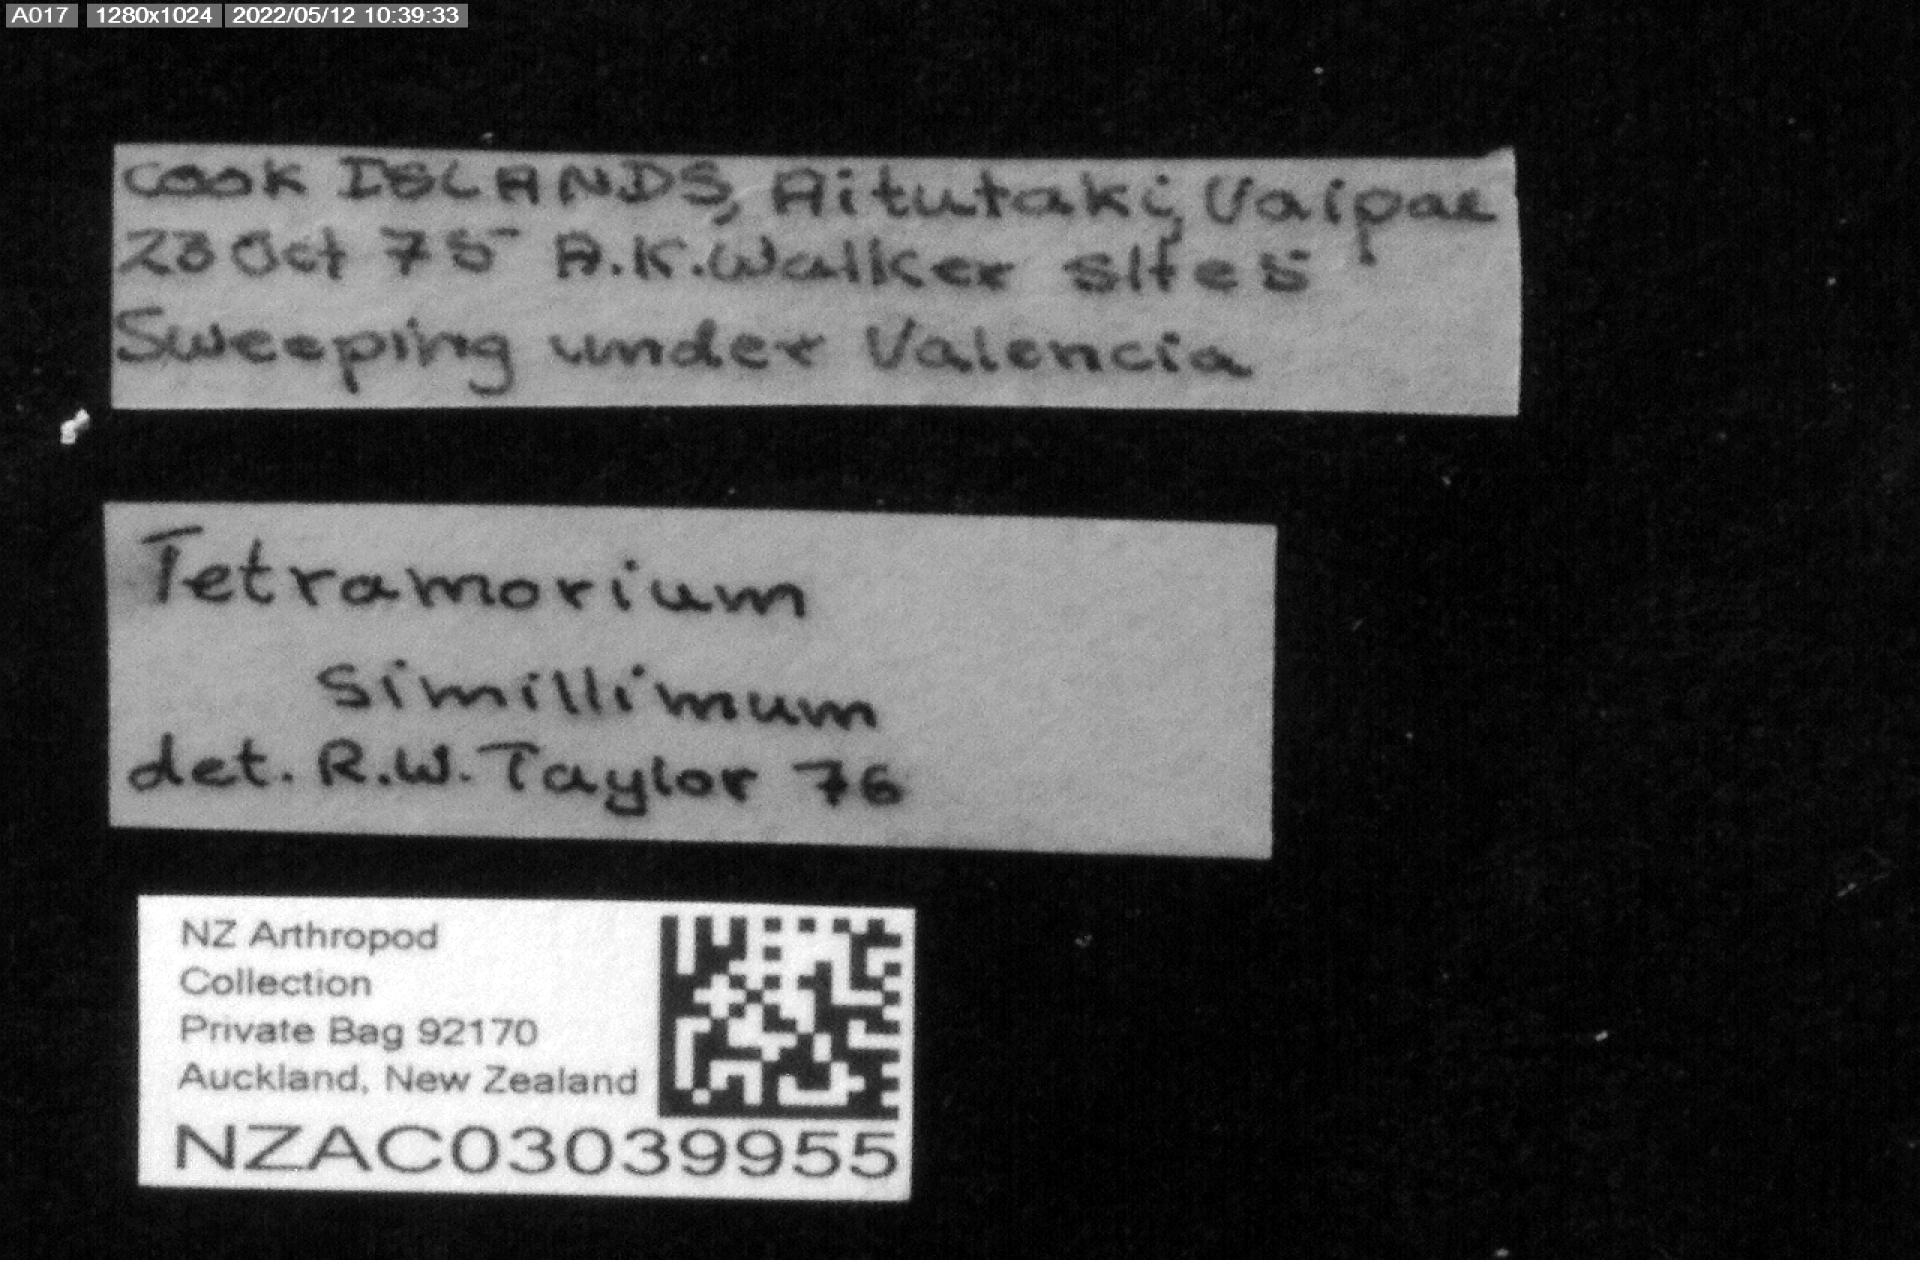 A017 1280x1024 2022/05/12 10:39:33
COOK ISLANDS, Aitutaki, Vaipae
23 Oct 75 A.K.Walker sites
Sweeping under Valencia
Tetramorium
simillimum
det. R.W. Taylor 76
NZ Arthropod
Collection
Private Bag 92170
Auckland, New Zealand
NZAC03039955